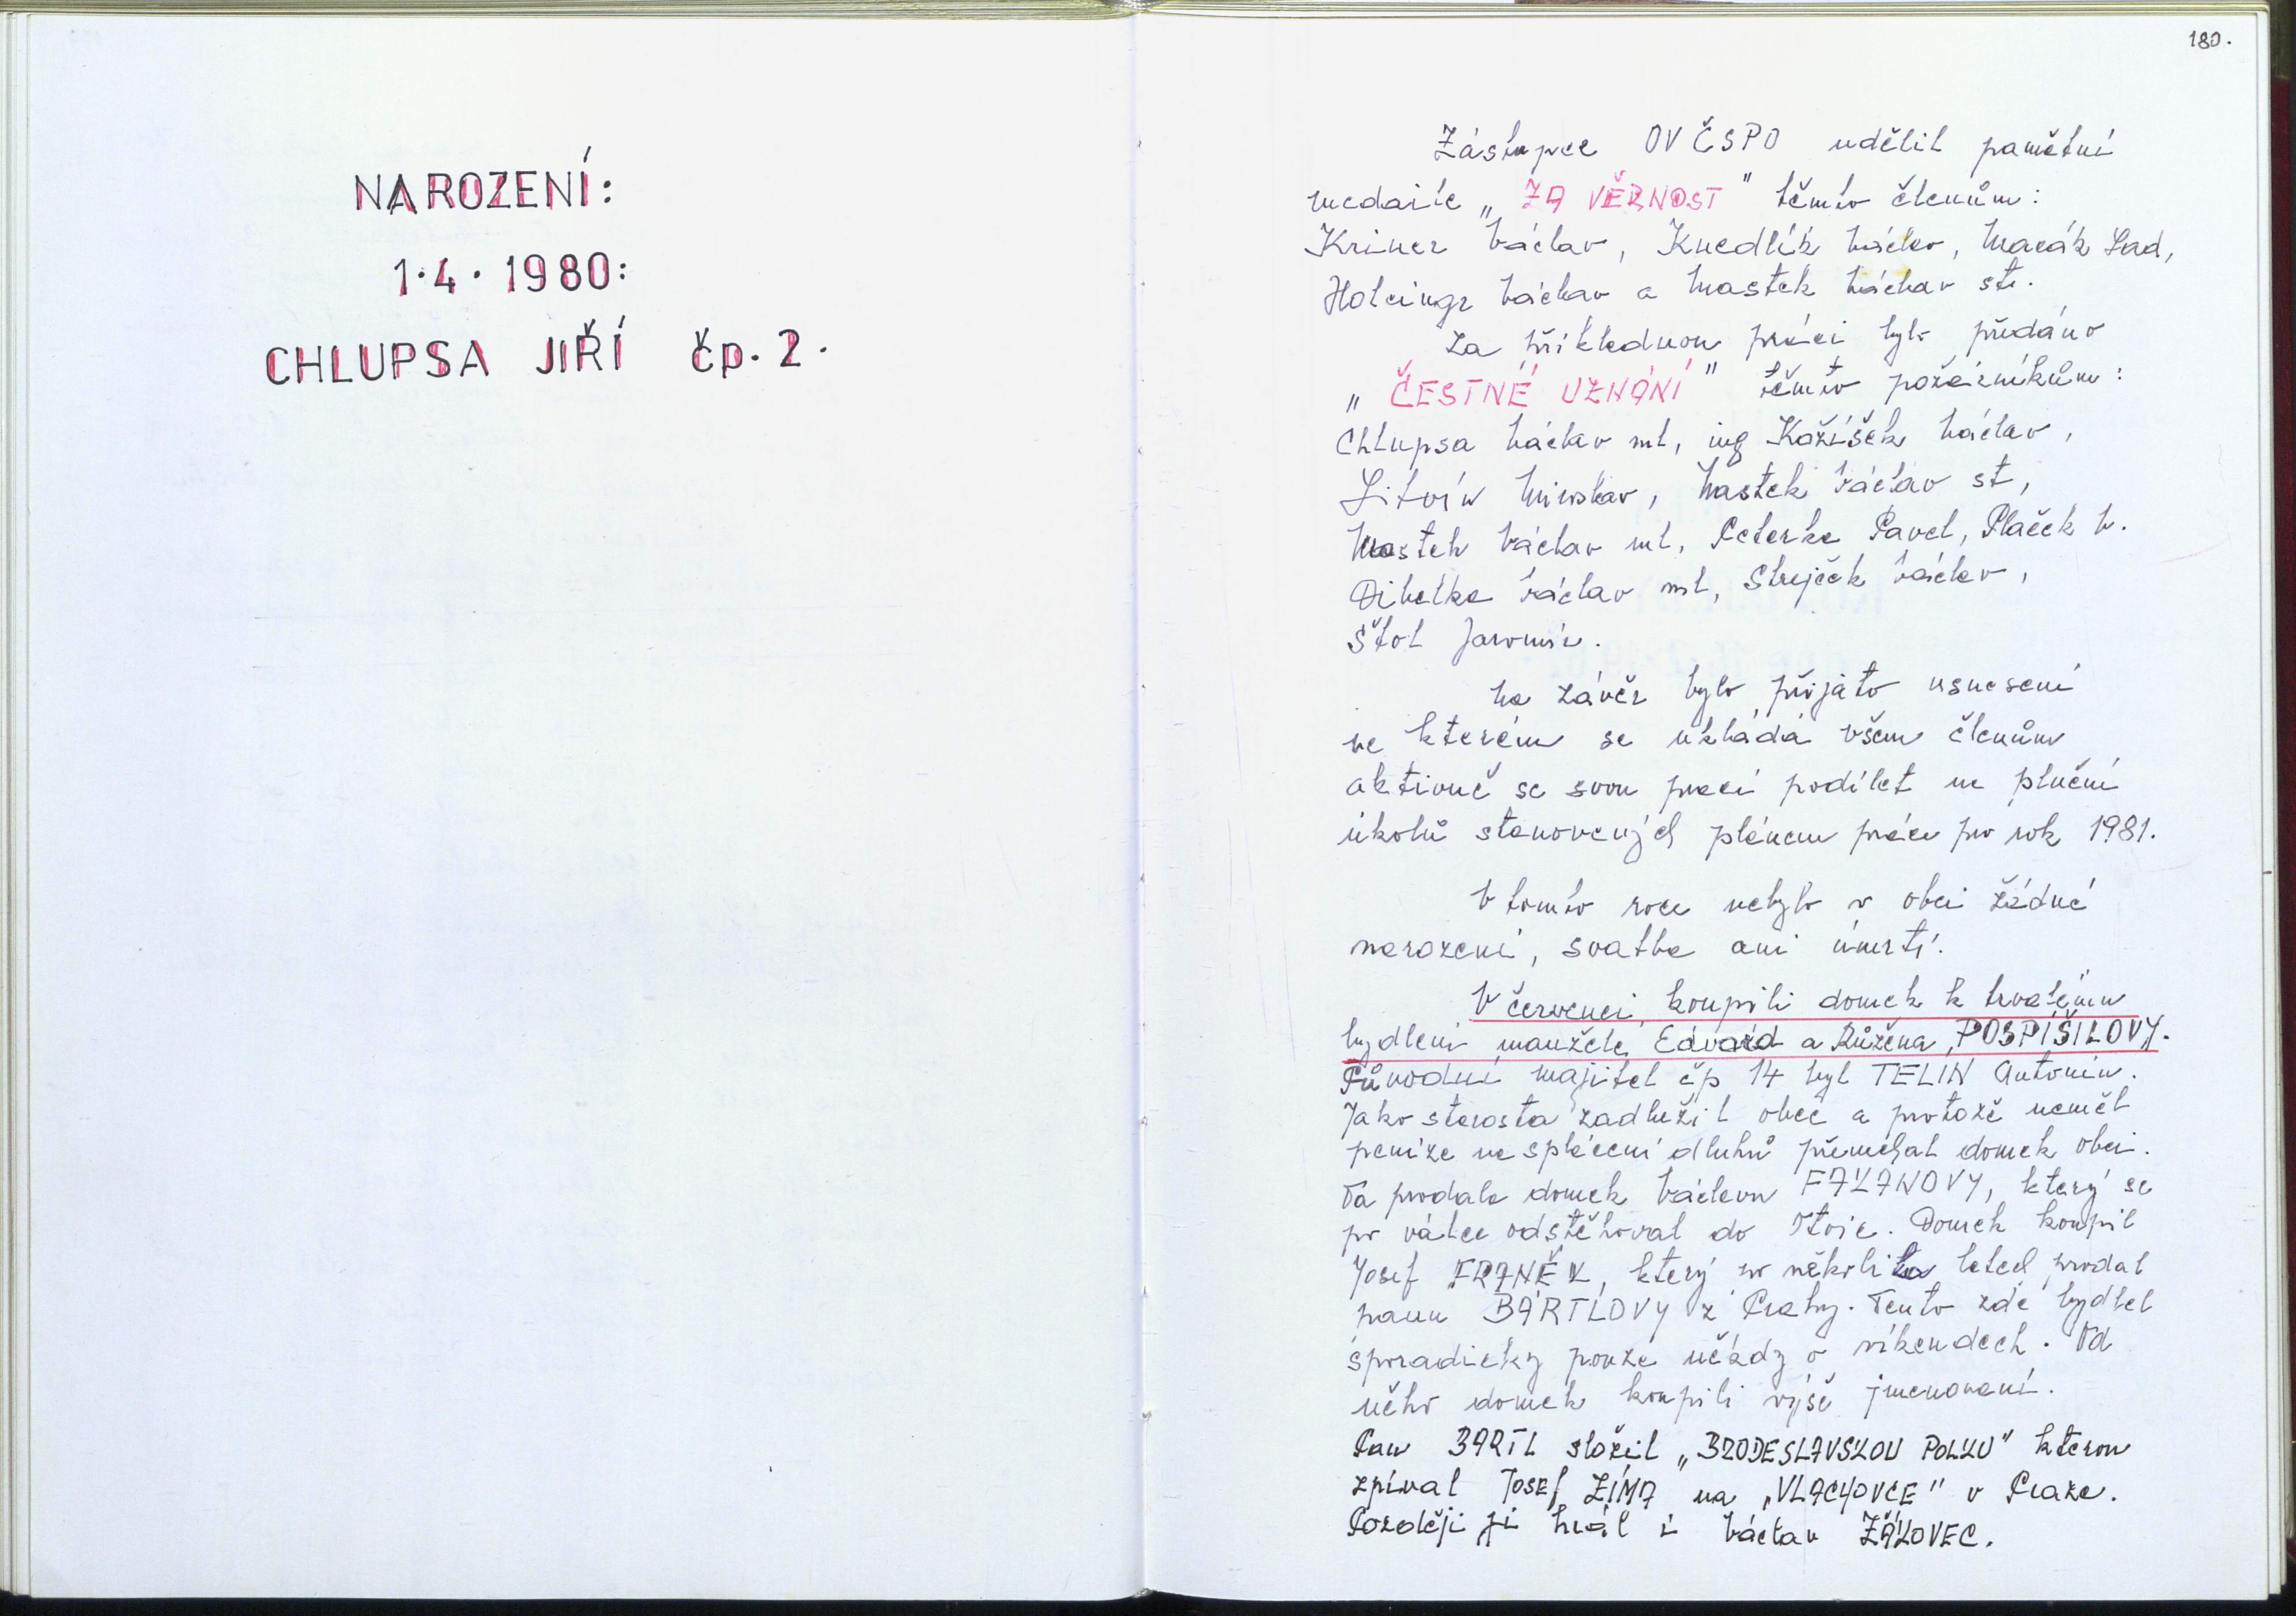 NAROZENÍ:
1.4.1980:
CHLUPSA JIŘÍ čp. 2.
180.
Zástupce OV ČSPO udělil pamětní
medaile „ZA VĚRNOST" těmto členům:
Kriner Václav, Knedlík Václav, Macák Lad,
Holcingr Václav a Mastek Václav st.
Za příkladnou práci bylo předáno
„ČESTNÉ UZNÁNÍ" těmto požárníkům:
Chlupsa Václav ml, ing Kožíšek Václav,
Litvín Miroslav, Mastek Václav st,
Mastek Václav ml, Peterka Pavel, Plaček V.
Dibelka Václav ml, Strejček Václav,
Štol Jaromír.
Na závěr bylo přijato usnesení
ve kterém se ukládá všem členům
aktivně se svou prací podílet na plnění
úkolů stanovených plánem práce pro rok 1981.
V tomto roce nebylo v obci žádné
narození, svatba ani úmrtí.
V červenci koupili domek k trvalému
bydlení manželé Edvard a Růžena POSPÍŠILOVY.
Původní majitel čp 14 byl TELIN Antonín.
Jako starosta zadlužil obec a protože neměl
peníze na splácení dluhů přenechal domek obci.
Ta prodala domek Václavu FAKANOVY, který se
po válce odstěhoval do Otvic. Domek koupil
Josef FRANĚK, který po několika letech prodal
panu BÁRTLOVY z Prahy. Tento zde bydlel
sporadicky pouze někdy o víkendech. Od
něho domek koupili výše jmenovaní.
Pan BARTL složil „BRODESLAVSKOU POLKU" kterou
zpíval Josef ZÍMA na „VLACHOVCE" v Praze.
Později ji hrál i Václav ŽÁKOVEC.